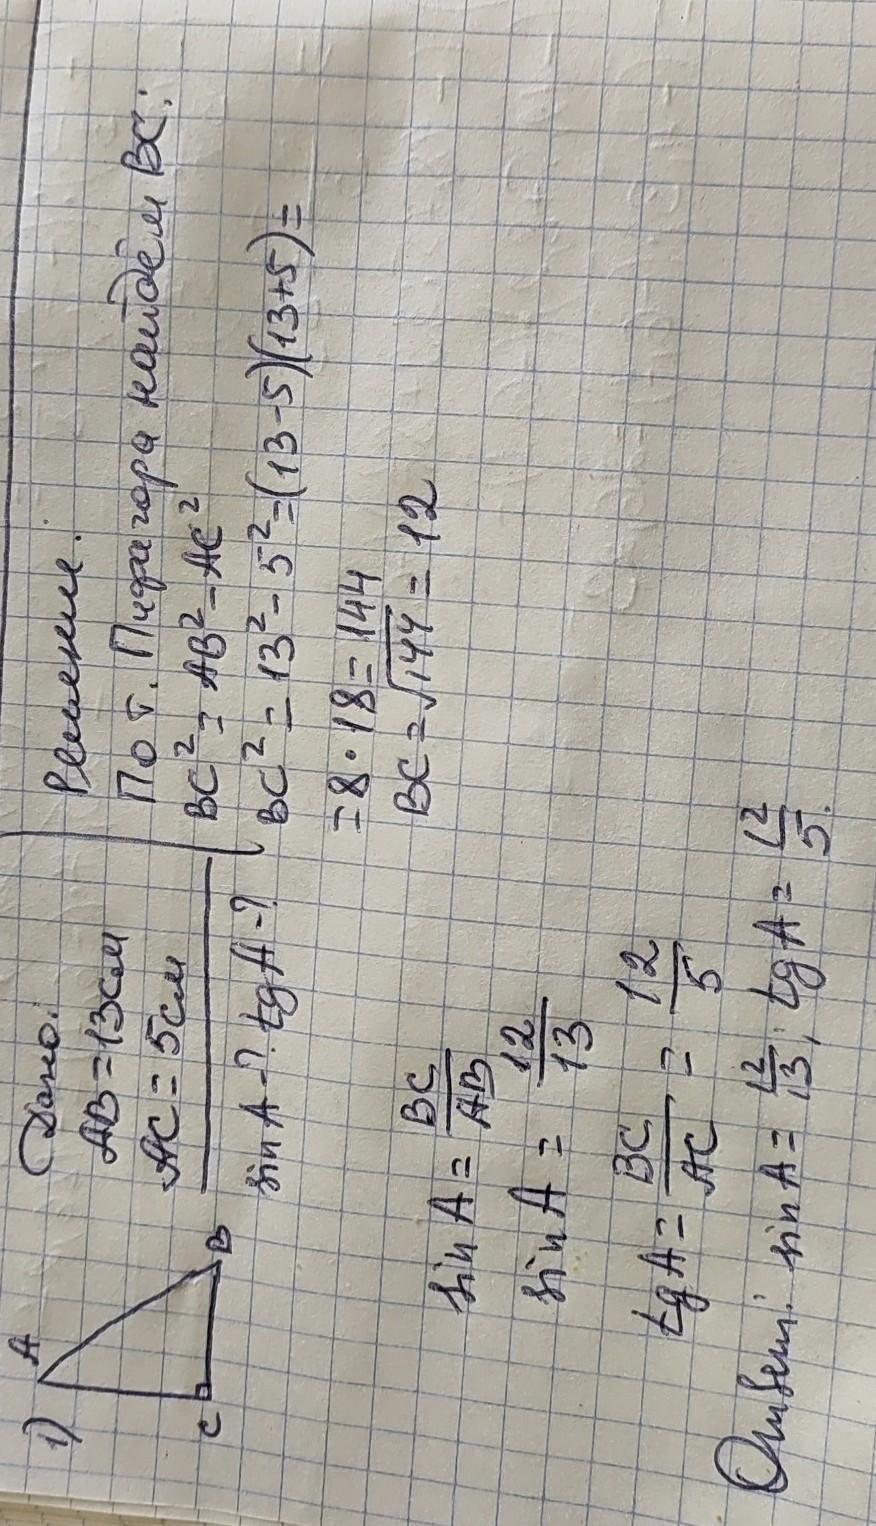 1)
A
C
B
Дано:
AB = 13см
AC = 5см
sin A - ? tg A - ?
Решение:
По т. Пифагора найдём BC:
BC² = AB² - AC²
BC² = 13² - 5² = (13 - 5)(13 + 5) =
= 8 · 18 = 144
BC = √144 = 12
sin A = BC/AB
sin A = 12/13
tg A = BC/AC = 12/5
Ответ: sin A = 12/13; tg A = 12/5.